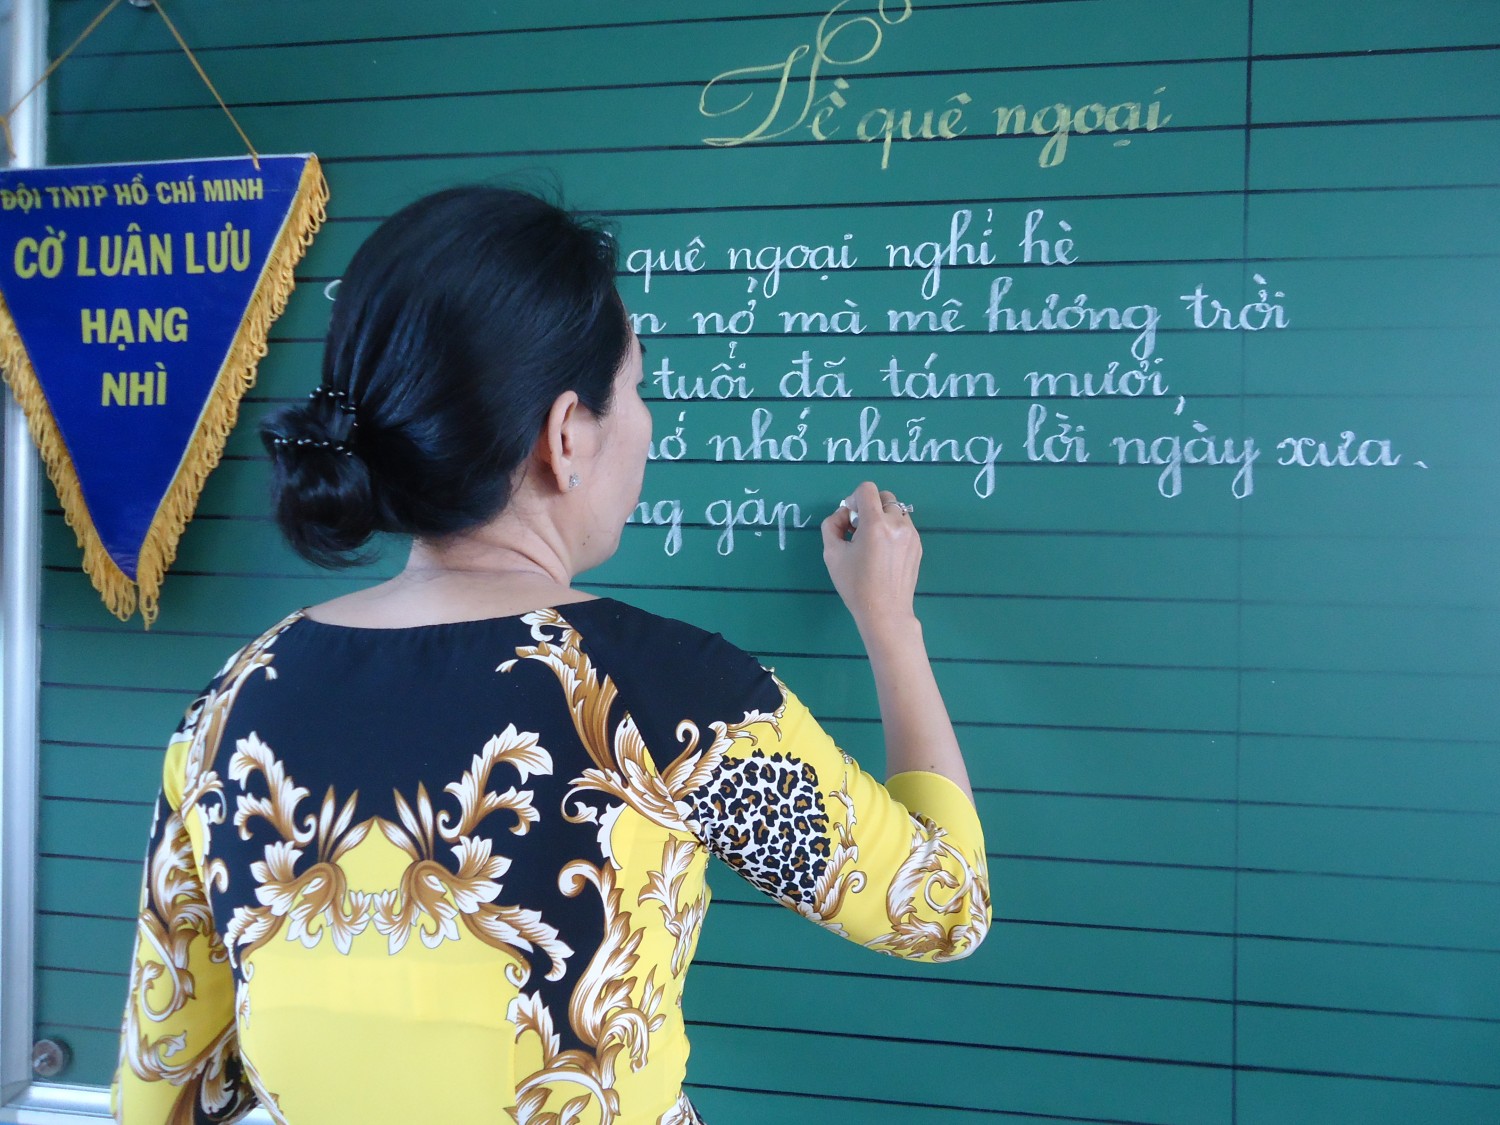 ĐỘI TNTP HỒ CHÍ MINH
CỜ LUÂN LƯU
HẠNG
NHÌ
Về quê ngoại
quê ngoại nghỉ hè
nở mà mê hương trời
tuổi đã tám mươi,
nhớ những lời ngày xưa.
gặp